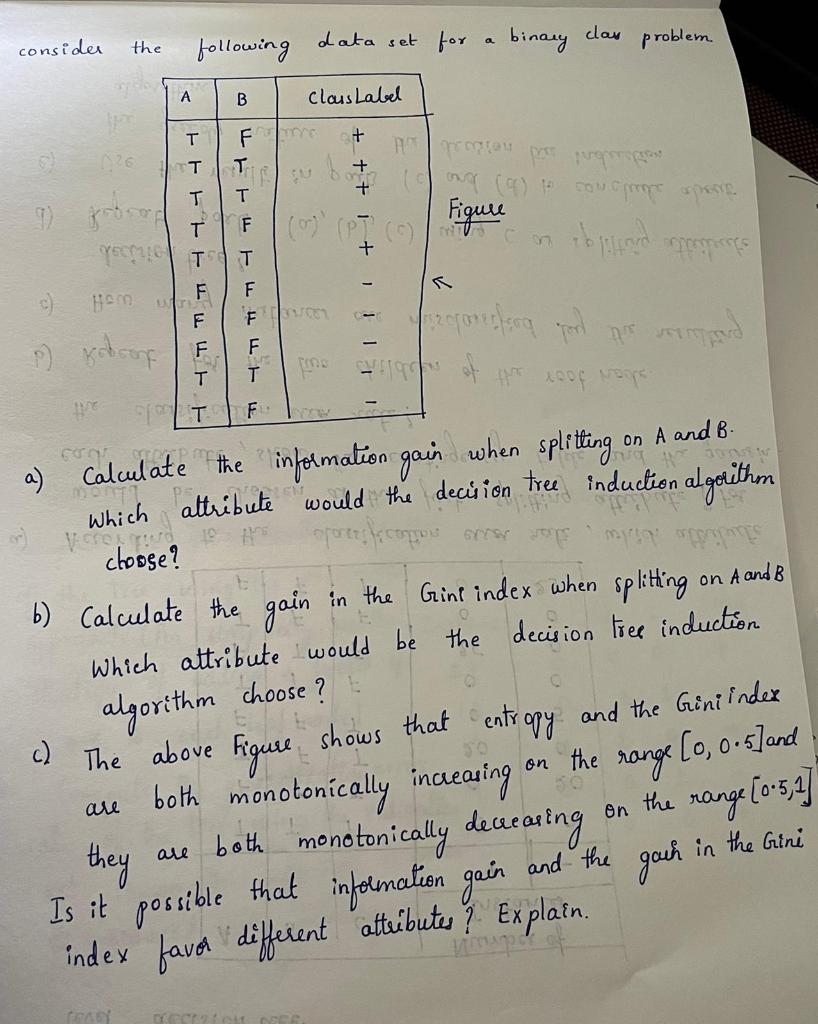 consider the following data set for a binary clas problem
A B Class Label
T F +
T T +
T T +
T F -
T T +
F F -
F F -
F F -
T T -
T F -
Figure
a) Calculate the information gain when splitting on A and B.
Which attribute would the decision tree induction algorithm
choose?
b) Calculate the gain in the Gini index when splitting on A and B
Which attribute would be the decision tree induction
algorithm choose?
c) The above Figure shows that entropy and the Gini index
are both monotonically increasing on the range [0, 0.5] and
they are both monotonically decreasing on the range [0.5,1]
Is it possible that information gain and the gain in the Gini
index favor different attributes? Explain.